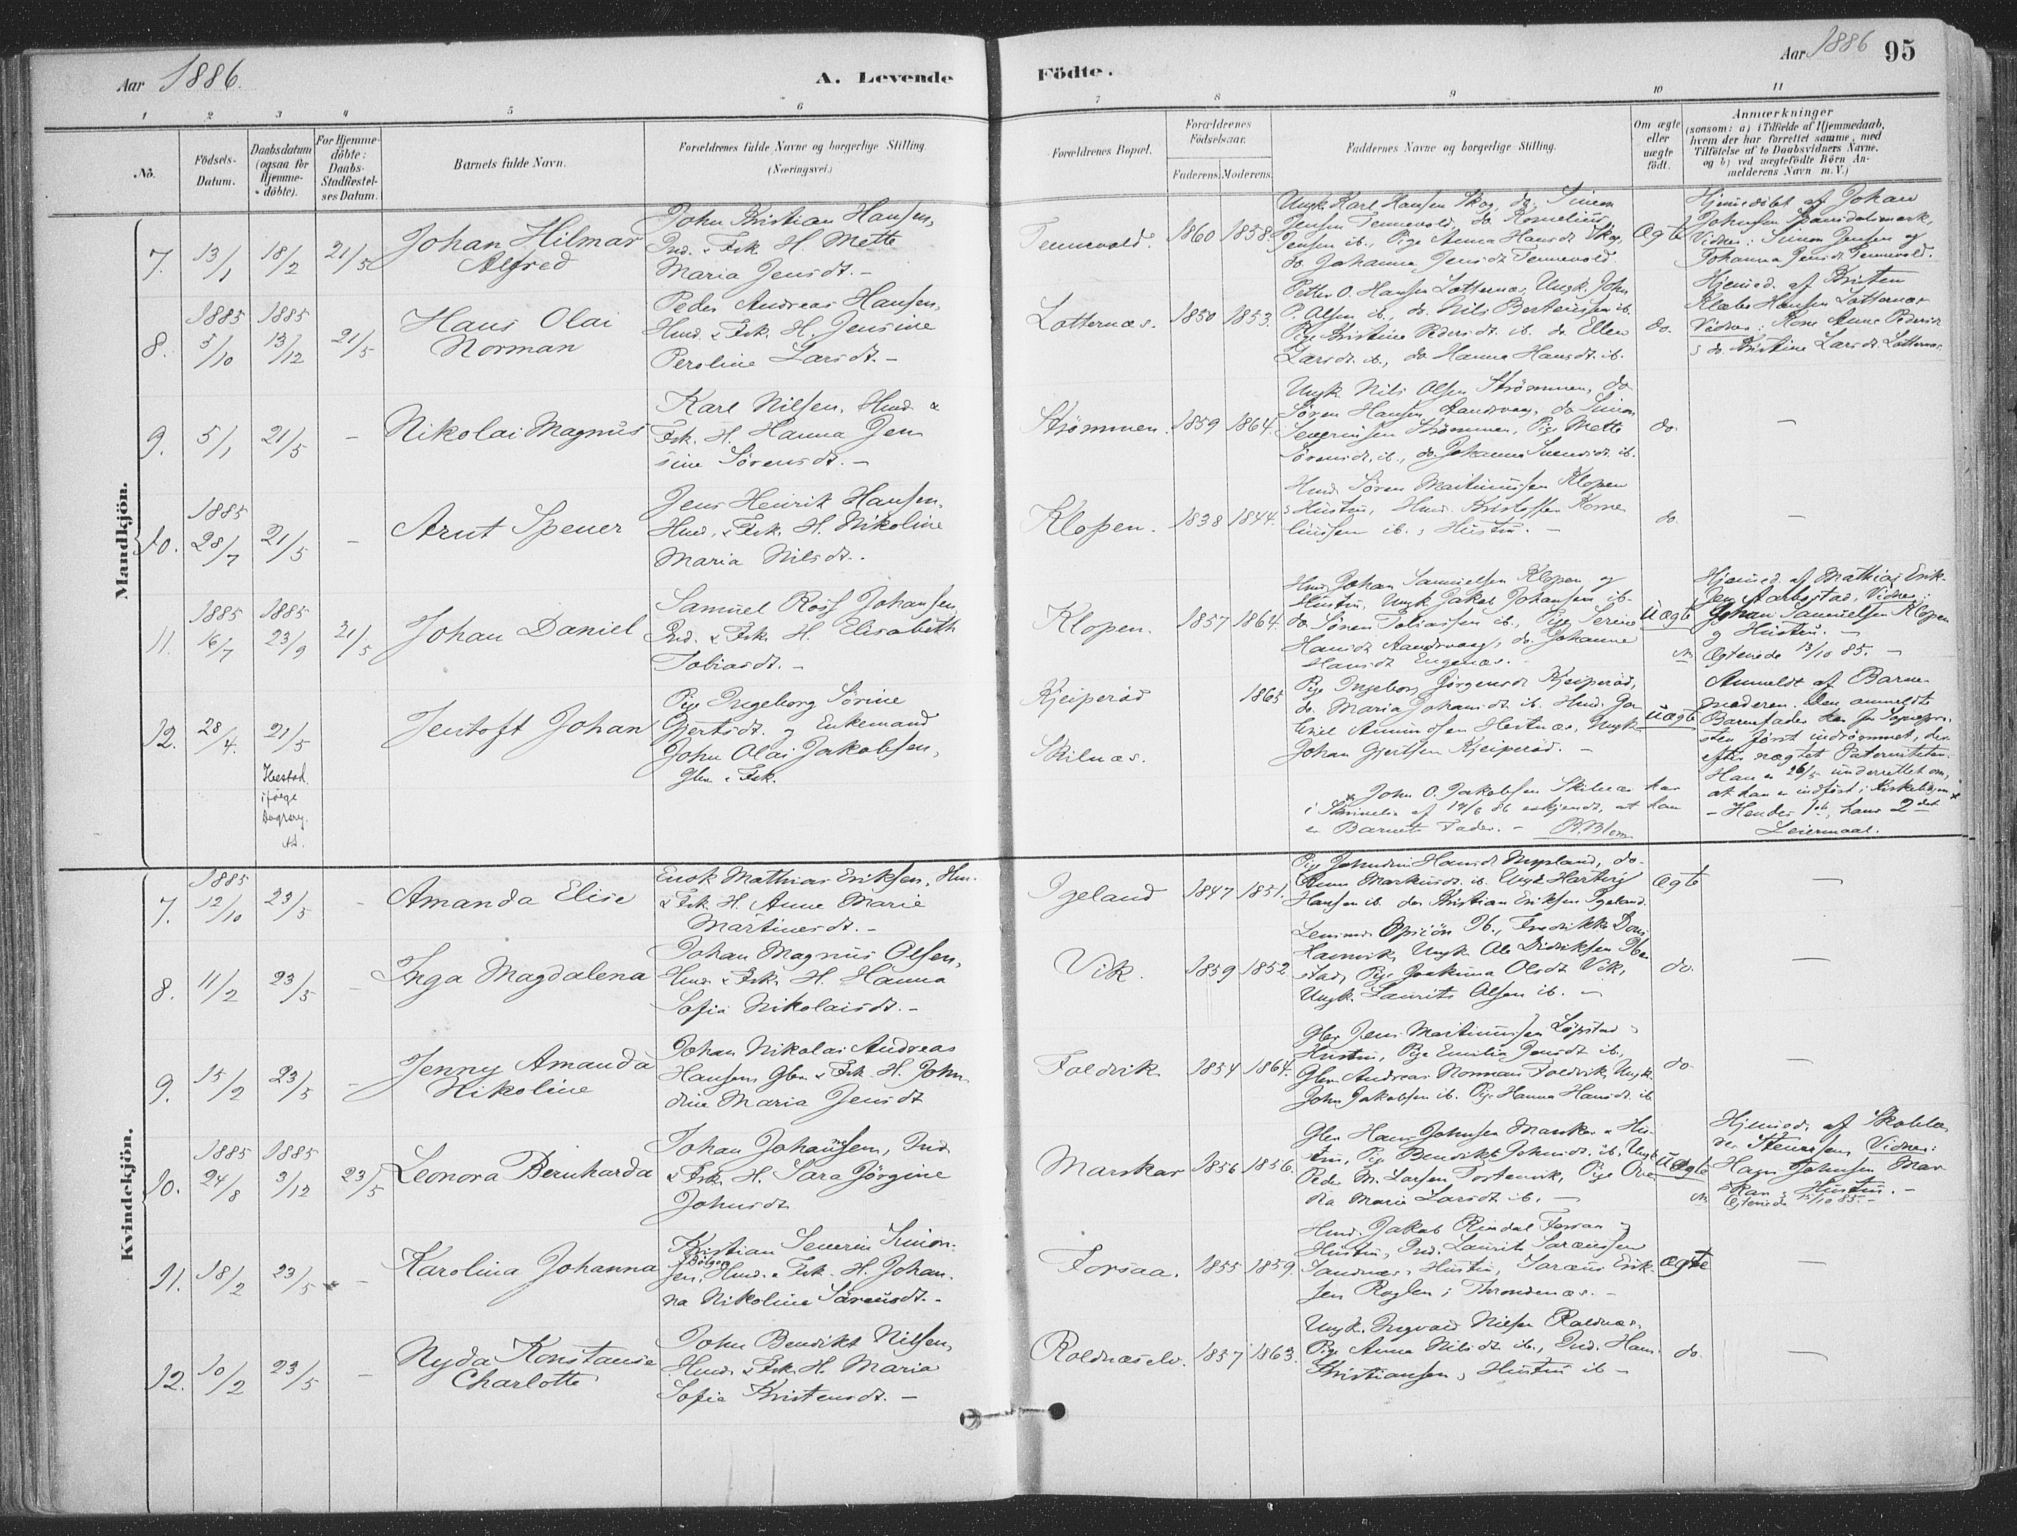 Aar 1886.
A. Levende
Födte.
Aar 1886
95
1 2 3 4 5 6 7 8 9 10 11
No.
Födsels-
Datum.
Daabsdatum
(ogsaa for
Hjemme-
döbte).
For Hjemme-
döbte:
Daabs-
Stadfæstel-
ses Datum.
Barnets fulde Navn.
Forældrenes fulde Navne og borgerlige Stilling.
(Næringsvei.)
Forældrenes Bopæl.
Forældrenes
Födselsaar.
Faderens. Moderens.
Faddernes Navne og borgerlige Stilling.
Om ægte
eller
uægte
født.
Anmærkninger
(saasom: a) i Tilfælde af Hjemmedaab,
hvem der har forrettet samme, med
Tilföielse af to Daabsvidners Navne,
og b) ved uægtefödte Börn An-
melderens Navn m. V.)
Mandkjön.
7. 13/1 18/2 21/5
Johan Hilmar
Alfred
John Kristian Hansen,
Ind. & Fsk. H. Mette
Maria Jensdt. -
Tennevold. 1860 1858.
Ungk. Karl Hansen Skog, do. Simon
Jensen Tennevold, do. Kornelius
Jensen ib., Pige Anna Hansdt Skog,
do. Johanna Jensdt Tennevold
Ægte
Hjemmedöbt af Johan
Johnsen
Vidner: Simon Jensen og
Johanna Jensdt Tennevold.
8. 1885 5/10 1885 13/12 21/5
Hans Olai
Norman
Peder Andreas Hansen,
Hmd. & Fsk. H. Jensine
Peroline Larsdt. -
Lotternæs. 1850 1853.
Petter O. Hansen Lotternæs, Ungk. John
P. Olsen ib., do. Nils Berteussen ib.
Pige Kristine Pedersdt. ib. do Ellen
Larsdt. ib., do Hanna Hansdt. ib.
do.
Hjemmed. af Kristen
Klæbo Hansen Lotternæs
Vidner: Kone Anne Pedersdt
& do. Kristine Larsdt. Lotternæs.
9. 5/1 21/5 -
Nikolai Magnus
Karl Nilsen, Hmd. &
Fsk. H. Hanna Jen
sine Sörensdt. -
Strömmen. 1859 1864.
Ungk Nils Olsen Strömmen, do
Sören Hansen Sandvaag, do Simon
Severinsen Strömmen, Pige Mette
Sörensdt. ib., do Johanna Svensdt. ib.
do. -
10. 1885 28/7 21/5 -
Arnt Spener
Jens Henrik Hansen,
Hmd. & Fsk. H. Nikoline
Maria Nilsdt.
Klopen. 1838 1844.
Hmd. Sören Martinussen Klopen
& Hustru, Hmd. Kristoffer Korne
liussen ib. & Hustru. -
do. -
11. 1885 16/7 1885 23/9 21/5
Johan Daniel
Samuel Rosf Johansen,
Ind. & Fsk. H. Elisabeth
Tobiasdt. -
Klopen. 1857 1864.
Hmd. Johan Samuelsen Klopen og
Hustru, Ungk Jakob Johansen ib.
do. Sören Tobiassen ib., Pige Serine
Hansdt Sandvaag, do. Johanne
Hansdt Engenæs. -
Uægte
Hjemmed. af Mathias Erik-
sen Aarbostad, Vidner:
Johan Samuelsen Klopen
og Hustru. -
Ægteviede 13/10 85. -
12. 28/4. 21/5
Hestad
ifölge
Dagreg.
Jentoft Johan
Pige Ingeborg Sörine
Gjertsdt. og Enkemand
John Olai Jakobsen,
Gbr. & Fsk.
Kjeiperöd
Skilnæs.
1865
Pige Ingeborg Jörgensdt Kjeiperöd,
do. Maria Johansdt. ib. Hmd. Ga
briel Amundsen Hestnæs, Ungk.
Johan Gjertsen Kjeiperöd. -
Uægte
Anmeldt af Barne-
moderen. Den anmeldte
Barnefader har for Sognepre-
sten först indrömmet, der-
efter nægtet Paterniteten.
Han er 26/5 underrettet om,
at han er indfört i Kirkebogen x
- Hendes 1ste, hans 2det
Leiermaal.
x John O. Jakobsen Skilnæs har
i Skrivelse af 14/6 86 erkjendt, at han
er Barnets Fader. - R. Blom
Kvindekjön.
7. 1885 12/10 23/5 -
Amanda Elise
Enok Mathias Eriksen, Hm.
& Fsk. H. Anne Marie
Martinesdt. -
Igeland 1847 1851.
Pige Johndine Hansdt Nypland, do.
Anne Markusdt. ib. Ungk Hartvig
Hansen ib. do Kristian Eriksen Igeland
Ægte -
8. 11/2 23/5 -
Inga Magdalena
Johan Magnus Olsen,
Hmd. & Fsk. H. Hanna
Sofia Nikolaisdt. -
Vik. 1859 1852
Hamnvik, Ungk Ole Didriksen
stad, Pige Joakima Olsdt Vik,
Ungk. Laurits Olsen ib. -
do. -
9. 15/2 23/5 -
Jenny Amanda
Nikoline
Johan Nikolai Andreas
Hansen, Gbr. & Fsk. H. John
dine Maria Jensdt
Foldvik 1854 1864.
Gbr. Jens Martinussen Löpstad &
Hustru, Pige Emilie Jensdt ib.,
Gbr. Andreas Norman Foldvik, Ungk.
John Jakobsen ib. Pige Hanna Hansdt. ib
do -
10. 1885 24/8 1885 3/12 23/5
Leonora Bernharda
Johan Johannesen, Ind
& Fsk. H. Sara Jörgine
Johnsdt
Marskar 1856 1856.
Gbr. Hans Johnsen Marskar & Hu-
stru, Pige Bendikte Johnsdt. ib., Ungk
Peder M. Larsen Fostervik, Pige Ove
dia Marie Larsdt ib. -
Uægte
Hjemmed. af Skolelæ
rer Steensen, Vidner:
Hagn Johnsen Mar
skar & Hustru. -
Ægteviede 13/10 85. -
11. 18/2 23/5 -
Karolina Johanna
Kristian Severin Simon-
sen, Hmd. & Fsk. H. Johan-
na Nikoline Sörensdt. -
Forsaa. 1855 1859.
Hmd. Jakob Rindal Forsaa og
Hustru, Ind. Laurits Saræussen
Sandnæs & Hustru, Saræus Erik-
sen Roglen i Throndenæs. -
Ægte -
12. 10/2 23/5 -
Nyda Konstanse
Charlotte
John Bendikt Nilsen,
Hmd. & Fsk. H. Maria
Sofia Kristensdt. -
Roldnæselv. 1857 1863.
Ungk. Ingvald Nilsen Roldnæs,
Pige Anna Nilsdt ib., Ind. Hans
Kristiansen & Hustru ib -
do. -